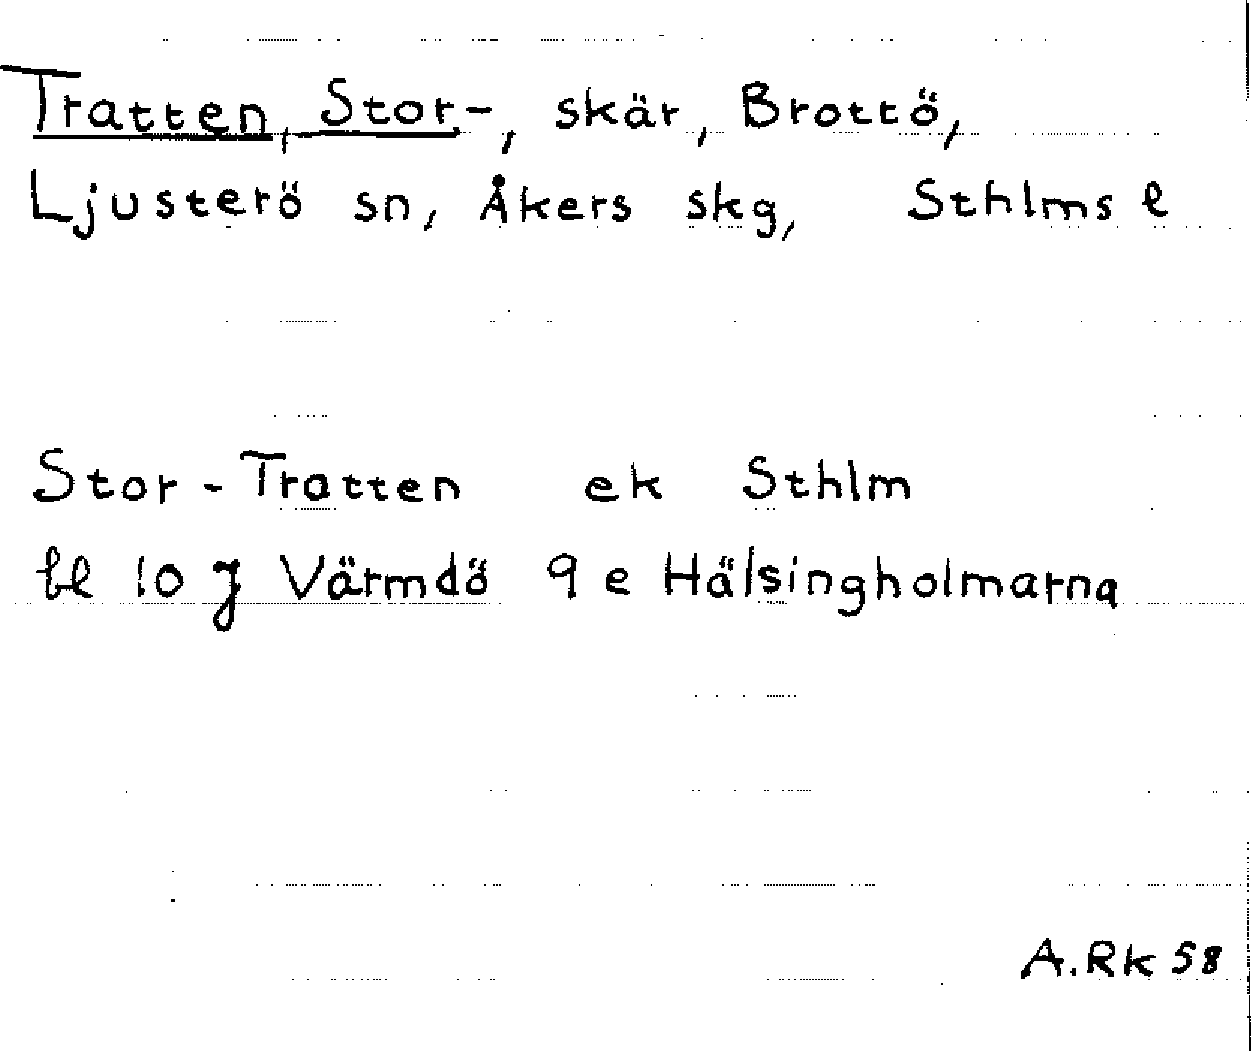 Tratten, Stor-, skär, Brottö,
Ljusterö sn, Åkers skg, Sthlms l
Stor-Tratten ek Sthlm
bl 10 J Värmdö 9 e Hälsingholmarna
A.Rk 58